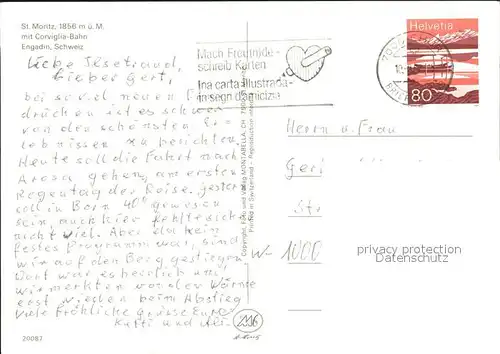 St. Moritz, 1856 m ü. M.
mit Corviglia-Bahn
Engadin, Schweiz
Liebe Ilsetraud,
lieber Gert,
bei soviel neuen
drücken ist es schwer
von den schönsten Er=
lebnissen zu berichten.
Heute soll die Fahrt nach
Arosa gehen, am ersten
Regentag der Reise. Gestern
soll in Bonn 40° gewesen
sein, auch hier fehlte sich
nicht viel. Aber da kein
festes Programm war, sind
wir auf den Berg gestiegen
Dort war es herrlich und
wir merkten von der Wärme
erst wieder beim Abstieg
Viele fröhliche Grüsse Eure
und
20087
Copyright, Foto und Verlag MONTABELLA, CH
Printed in Switzerland - Reproduktion
Mach Freunde -
schreib Karten
Ina carta illustrada -
in segn d'amicizia
Helvetia
80
Herrn u. Frau
Ger
Str
W- 1000
privacy protection
Datenschutz